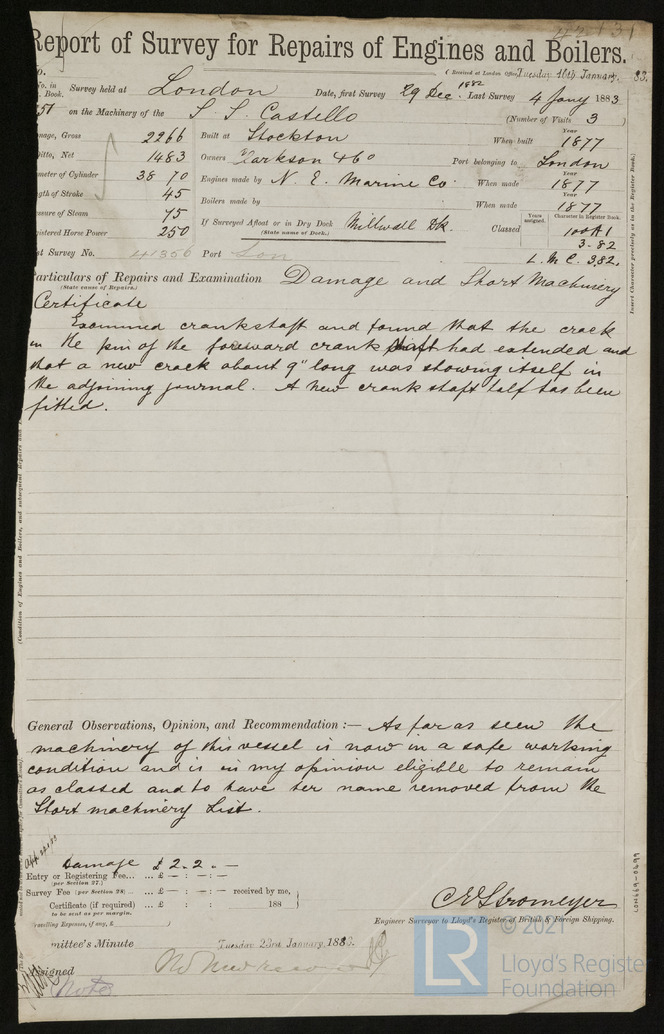 Report of Survey for Repairs of Engines and Boilers.
(Received at London Office Tuesday 16th January, 83.
No. in Book. Survey held at London Date, first Survey 29 Dec. 1882 Last Survey 4 Jany 1883
on the Machinery of the S. S. Castello (Number of Visits 3)
nage, Gross 2266 Built at Stockton When built Year 1877
itto, Net 1483 Owners Clarkson & Co Port belonging to London
meter of Cylinder 38 70 Engines made by N. E. Marine Co. When made Year 1877
gth of Stroke 45 Boilers made by When made Year 1877
ssure of Steam 75 If Surveyed Afloat or in Dry Dock Millwall Dk. Classed Years assigned. Character in Register Book. 100A1
istered Horse Power 250 (State name of Dock.) 3.82
st Survey No. 41356 Port Lon L. M. C. 3.82.
Insert Character precisely as in the Register Book.)
articulars of Repairs and Examination Damage and Short Machinery
(State cause of Repairs.)
Certificate
Examined crankshaft and found that the crack
in the pin of the forward crank shaft had extended and
that a new crack about 9" long was showing itself in
the adjoining journal. A new crank shaft half has been
fitted.
(Condition of Engines and Boilers, and subsequent Repairs and
General Observations, Opinion, and Recommendation :— As far as seen the
machinery of this vessel is now in a safe working
condition and is in my opinion eligible to remain
as classed and to have her name removed from the
Short machinery List.
Damage ... £ 2 . 2 . —
Entry or Registering Fee... ... £ — : — : —
(per Section 27.)
Survey Fee (per Section 28) ... £ — : — : — received by me,
Certificate (if required) ... £ — : — : — 188
to be sent as per margin.
ravelling Expenses, if any, £
C E Stromeyer
Engineer Surveyor to Lloyd's Register of British & Foreign Shipping.
mittee's Minute Tuesday 23rd January, 1883.
ssigned
Notes
LON669-0699
© 2021
LR
Lloyd's Register
Foundation